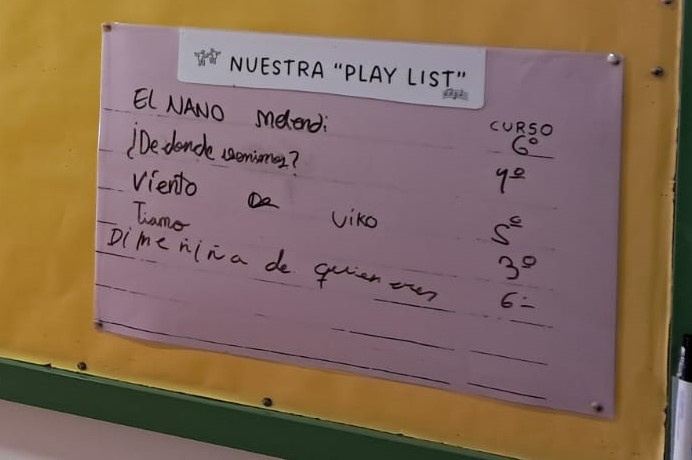 NUESTRA "PLAY LIST"
CURSO
EL NANO Melendi 6º
¿De donde venimos? 4º
Viento De Viko 5º
Tiamo 3º
Dime niña de quien eres 6º